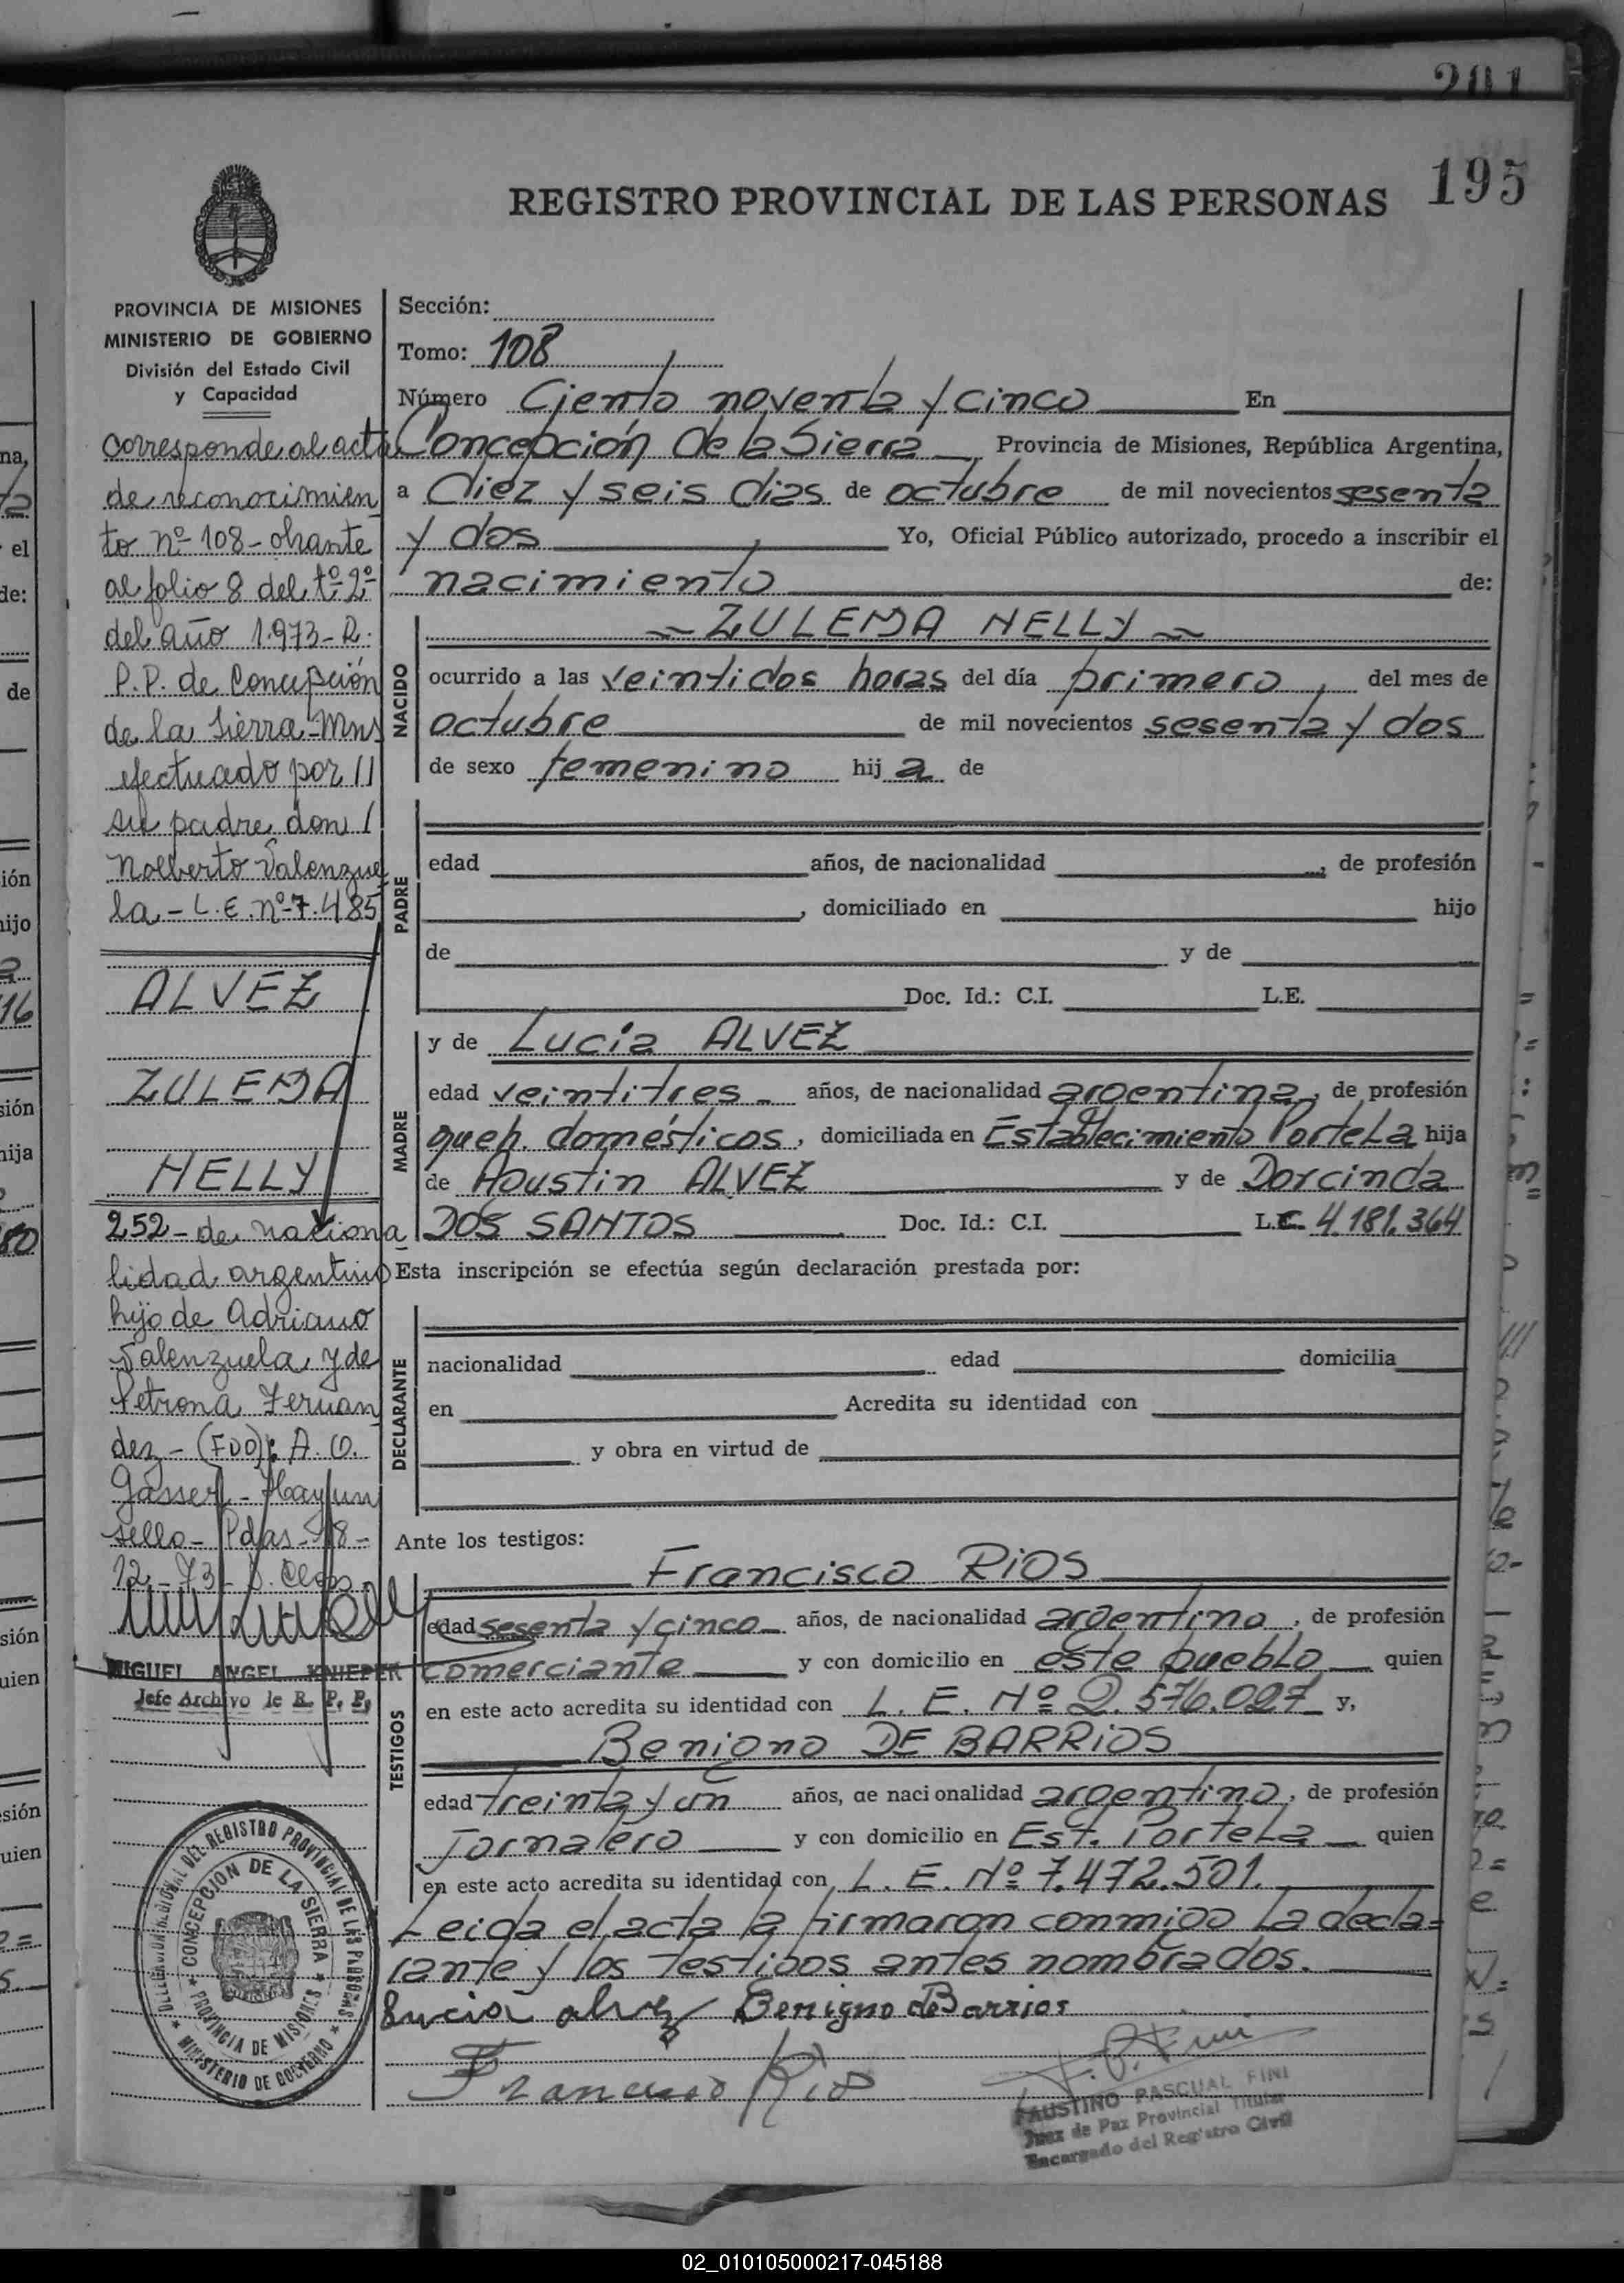 201
195
REGISTRO PROVINCIAL DE LAS PERSONAS
PROVINCIA DE MISIONES
MINISTERIO DE GOBIERNO
División del Estado Civil
y Capacidad
corresponde al acta
de reconocimien
to nº 108 - obrante
al folio 8 del tº 2º
del año 1.973 - R.
P.P. de Concepción
de la Sierra - Mns
efectuado por //
su padre don /
Nolberto Valenzue
la - L.E. nº 7.485
ALVEZ
ZULEMA
NELLY
252 - de naciona
lidad argentino
hijo de Adriano
Valenzuela y de
Petrona Fernan
dez - (FDO): A. O.
Gasser - Hay un
sello - Pdas - 18 -
12 - 73 -
MIGUEL ANGEL KNIEPER
Jefe Archivo de R. P. P.
DEL REGISTRO PROVINCIAL DE LAS PERSONAS
CONCEPCION DE LA SIERRA
PROVINCIA DE MISIONES
MINISTERIO DE GOBIERNO
Sección:
Tomo: 108
Número Ciento noventa y cinco En
Concepción de la Sierra Provincia de Misiones, República Argentina,
a Diez y seis dias de octubre de mil novecientos sesenta
y dos Yo, Oficial Público autorizado, procedo a inscribir el
nacimiento de:
NACIDO
ZULEMA NELLY
ocurrido a las veintidos horas del día primero del mes de
octubre de mil novecientos sesenta y dos
de sexo femenino hij a de
PADRE
edad años, de nacionalidad , de profesión
, domiciliado en hijo
de y de
Doc. Id.: C.I. L.E.
MADRE
y de Lucia ALVEZ
edad veintitres años, de nacionalidad argentina, de profesión
queh. domésticos, domiciliada en Establecimiento Portela hija
de Agustin ALVEZ y de Dorcinda
DOS SANTOS Doc. Id.: C.I. L.C. 4.181.364
Esta inscripción se efectúa según declaración prestada por:
DECLARANTE
nacionalidad edad domicilia
en Acredita su identidad con
y obra en virtud de
Ante los testigos:
TESTIGOS
Francisco RIOS
edad sesenta y cinco años, de nacionalidad argentino, de profesión
comerciante y con domicilio en este pueblo quien
en este acto acredita su identidad con L. E. Nº 2.576.027 y,
Benigno DE BARRIOS
edad treinta y un años, de nacionalidad argentino, de profesión
Jornalero y con domicilio en Est. Portela quien
en este acto acredita su identidad con L. E. Nº 7.472.501.
Leida el acta la firmaron conmigo la decla=
rante y los testigos antes nombrados.
Lucia alvez Benigno de Barrios
Francisco Rios
FAUSTINO PASCUAL FINI
Juez de Paz Provincial Titular
Encargado del Registro Civil
02_010105000217-045188